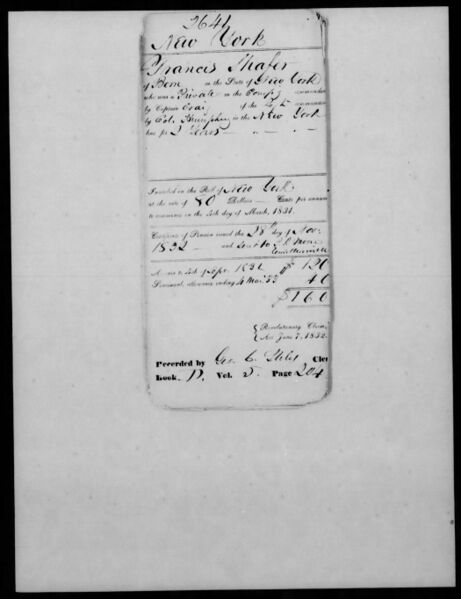 2644
New York
Francis Shafer
of Bern in the State of New York
who was a Private in the Comp'y commanded
by Captain of the commanded
by Col. Humphrey in the New York
line for 2 Years
Inscribed on the Roll of New York
at the rate of 80 Dollars Cents per annum
to commence on the 4th day of March, 1831.
Certificate of Pension issued the 28th day of Nov.
1832 and sent to
Arrears to 4th of Sepr. 1832 120
Semi-anl. allowance ending 4 Mar. 33 40
$160
{ Revolutionary Claim,
{ Act June 7, 1832.
Recorded by Geo. C. Clerk
Book D. Vol. 5. Page 204